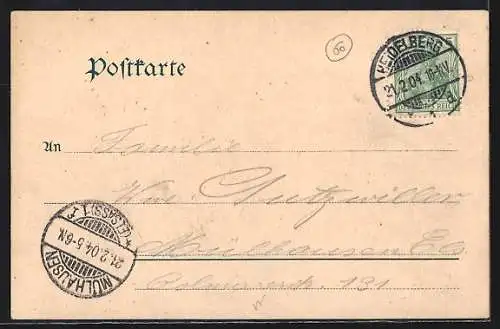 Postkarte
6
HEIDELBERG
21.2.04. 10-11V.
An Familie
Wwe. Gutzwiller
Mülhausen Els
Colmarerstr. 131
MÜLHAUSEN
21.2.04.5-6N.
(ELSASS) 1